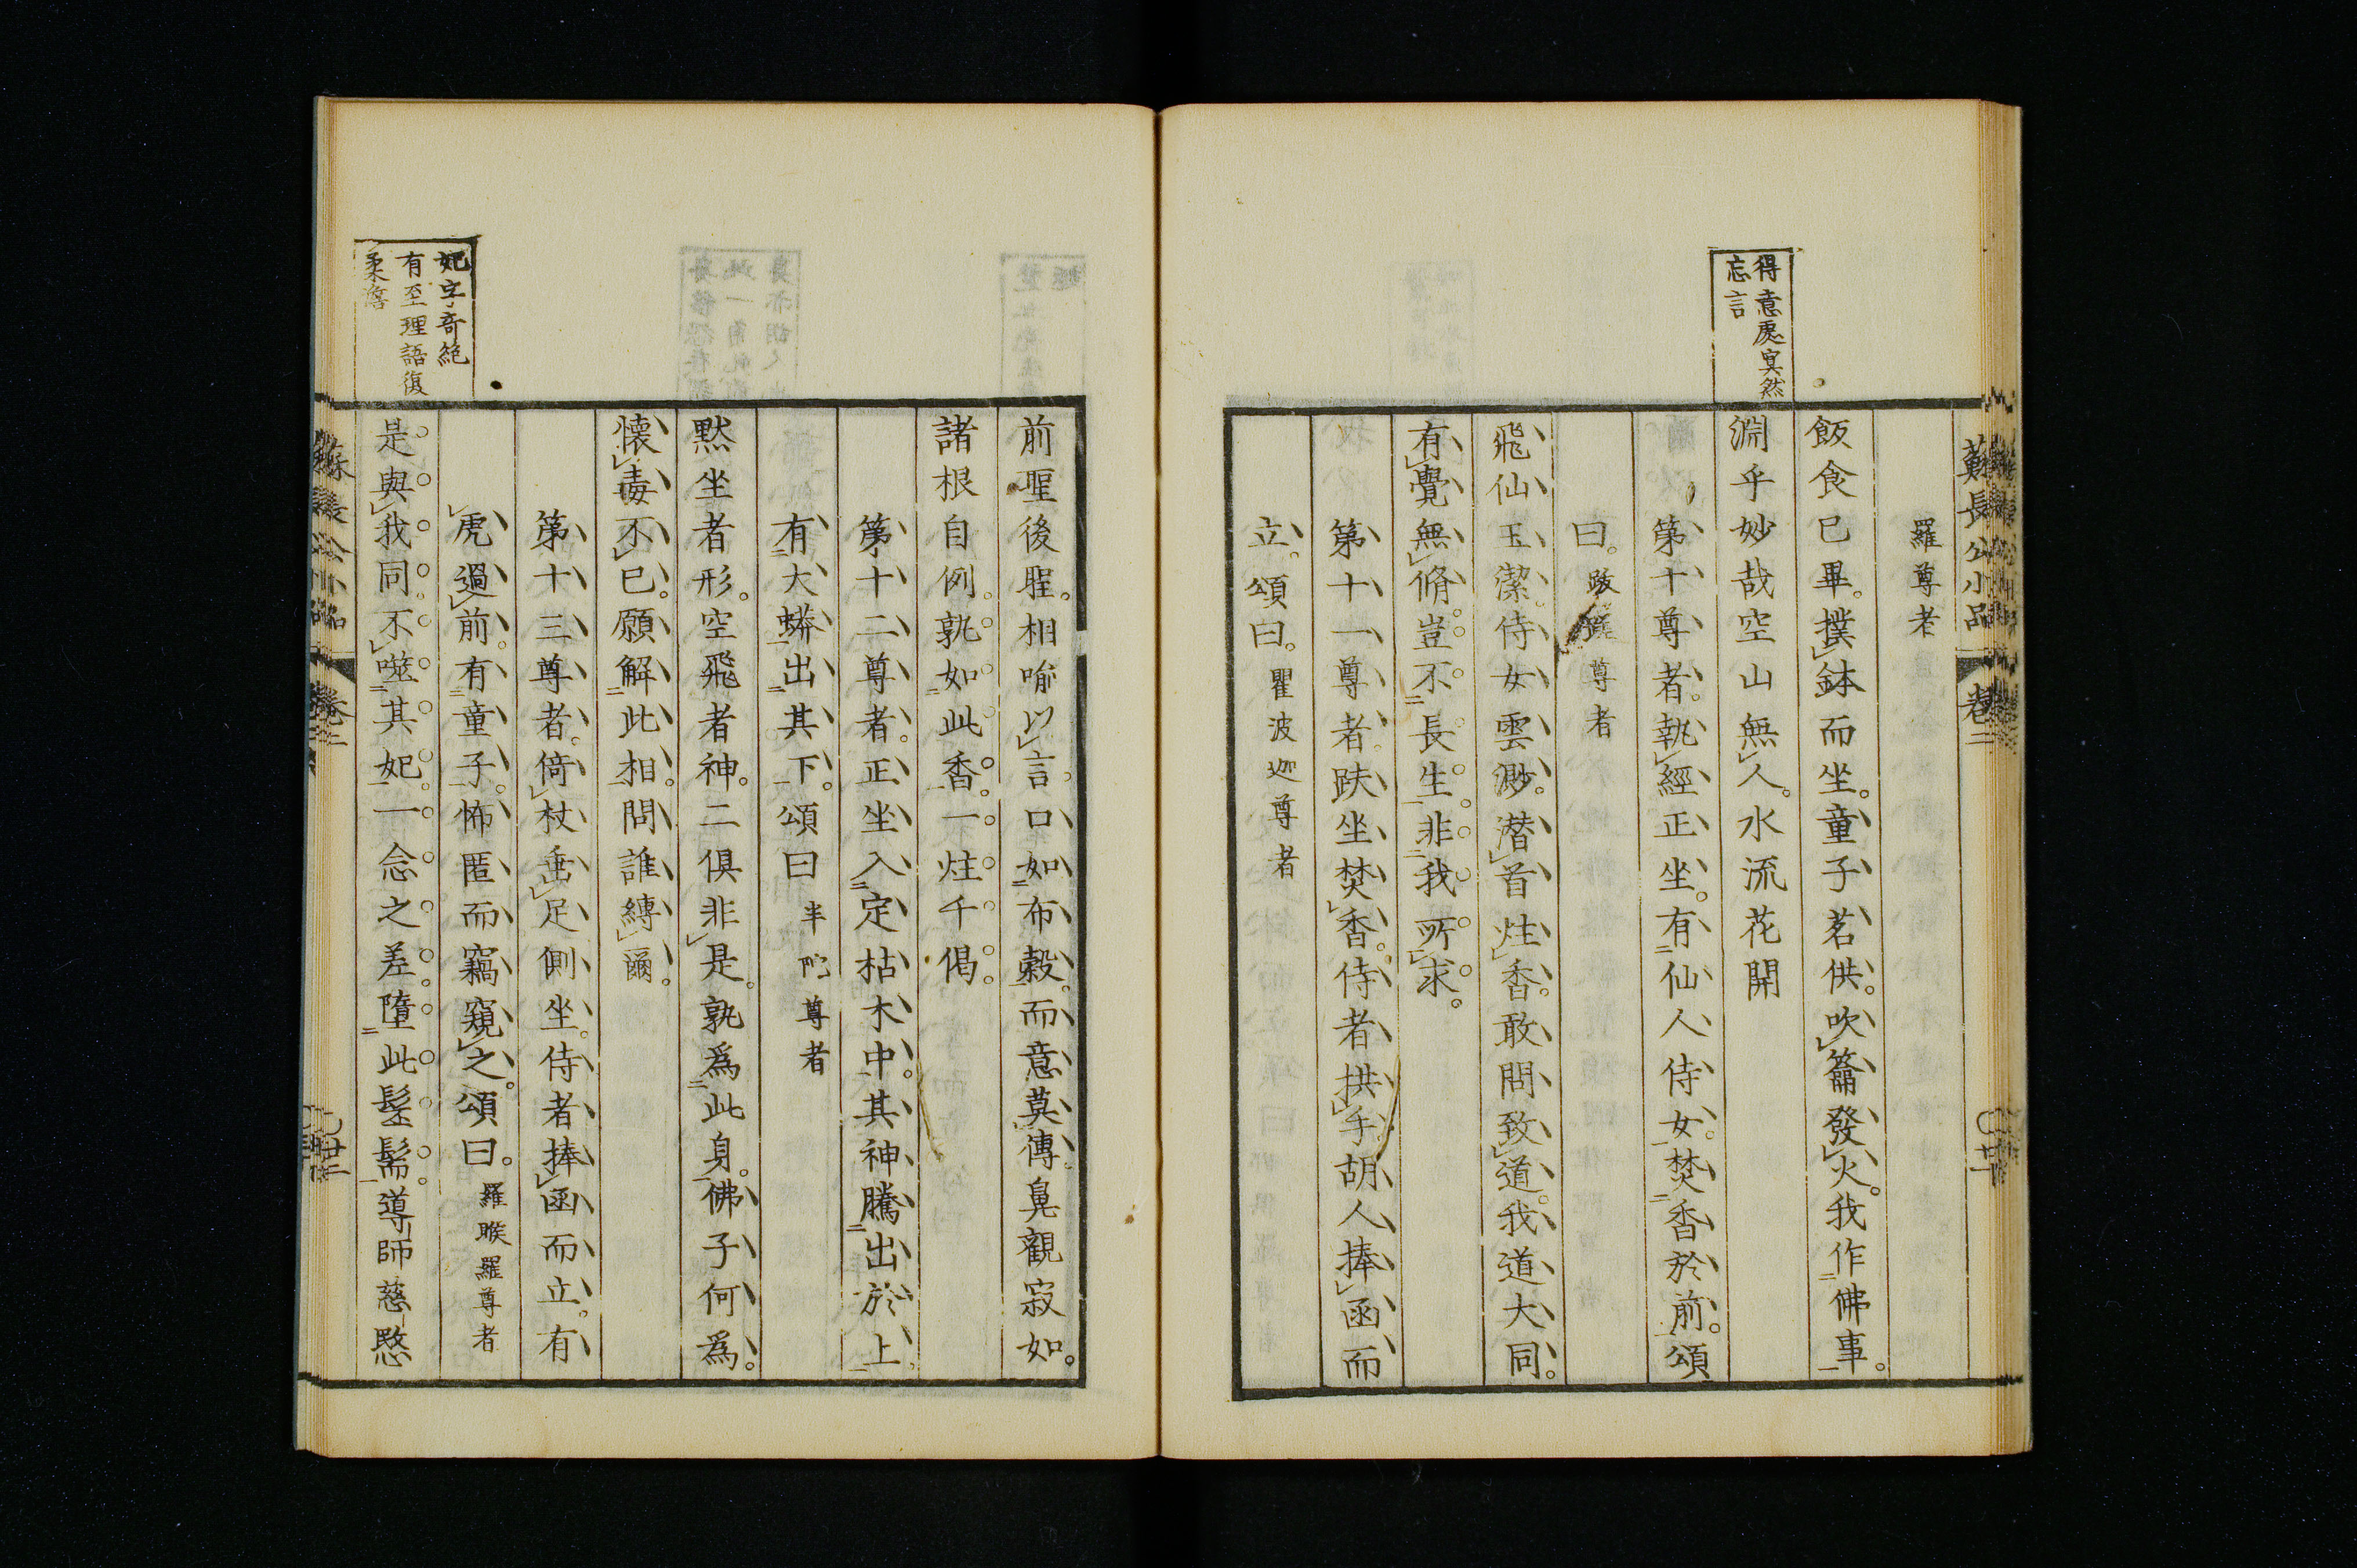 蘇長公小品 卷二 〇廿一
得意處冥然
忘言
羅尊者
飯食已畢。撲鉢而坐。童子茗供。吹籥發火。我作佛事。
淵乎妙哉空山無人。水流花開
第十尊者。執經正坐。有仙人侍女。焚香於前。頌
曰。尊者
飛仙玉潔。侍女雲渺。潛首炷香。敢問致道。我道大同。
有覺無脩。豈不長生。非我所求。
第十一尊者趺坐焚香。侍者拱手。胡人捧函而
立。頌曰。瞿波迦尊者
前聖後聖。相喻以言。口如布穀。而意莫傳。鼻觀寂如。
諸根自例。孰如此香。一炷千偈。
第十二尊者。正坐入定枯木中。其神騰出於上。
有大蟒出其下。頌曰半尊者
默坐者形。空飛者神。二俱非是。孰為此身。佛子何為。
懷毒不已。願解此相。問誰縛爾。
第十三尊者。倚杖垂足側坐。侍者捧函而立。有
虎過前。有童子。怖匿而竊窺之。頌曰。羅睺羅尊者
是與我同。不噬其妃。一念之差。墮此髬髵。導師慈愍
妃字奇絕
有至理語復
柔澹